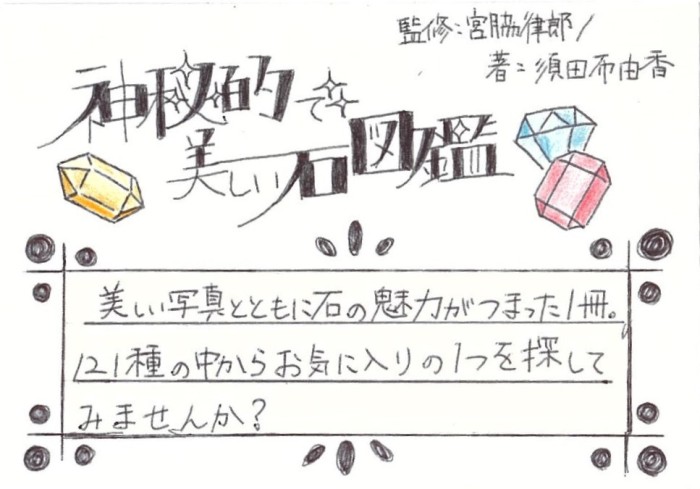 監修:宮脇律郎/
著:須田布由香
神秘的で
美しい石図鑑
美しい写真とともに石の魅力がつまった1冊。
121種の中からお気に入りの1つを探して
みませんか?